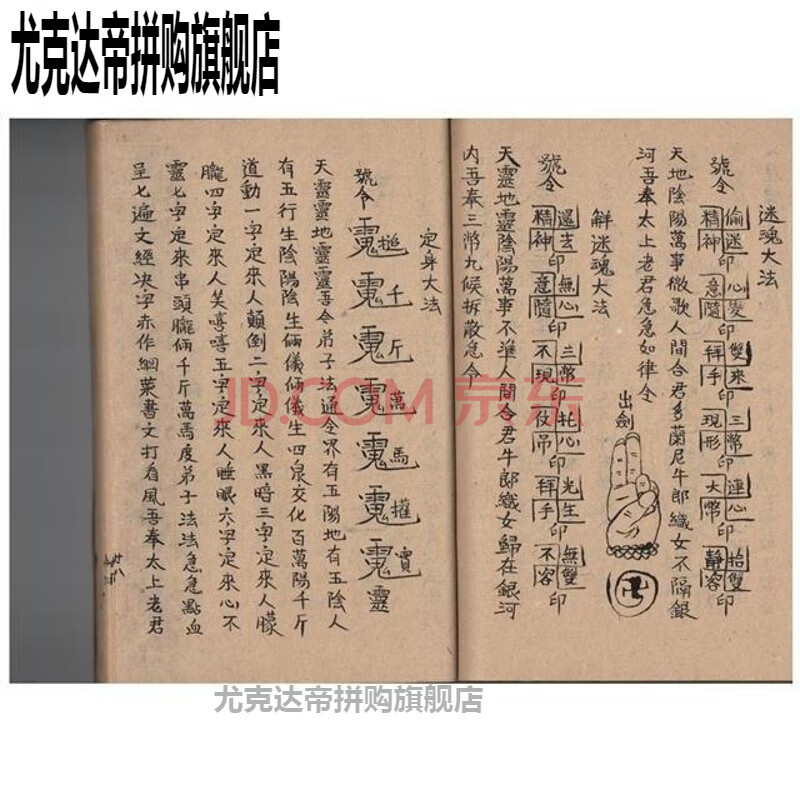 尤克达帝拼购旗舰店
迷魂大法
號令
偷迷精神印
心变意隨印
雙來拜手印
三幣現形印
連心大幣印
抬雙静容印
天地陰陽萬事微歌人間合君多蘭尼牛郎織女不隔銀
河吾奉太上老君急急如律令
出劍
卍
解迷魂大法
號令
還去精神印
無心意隨印
三幣不現印
托心伎吊印
光生拜手印
無雙不容印
天靈地靈陰陽萬事不準人間合君牛郎織女歸在銀河
内吾奉三幣九候拆散急令
定身大法
號令
千斤萬馬
靈
天靈靈地靈靈吾令弟子法通令界有五陽地有五陰人
有五行生陰陽陰生倆儀倆儀生四泉交化百萬陽千斤
道動一字定來人顛倒二字定來人黑暗三字定來人朦
朧四字定來人笑嘻嘻五字定來人睡眠六字定來心不
靈七字定來串頭朧倆千斤萬馬度弟子法法急急點血
呈七遍文經决字赤作綱菜書文打看風吾奉太上老君
JD.COM 京东
尤克达帝拼购旗舰店